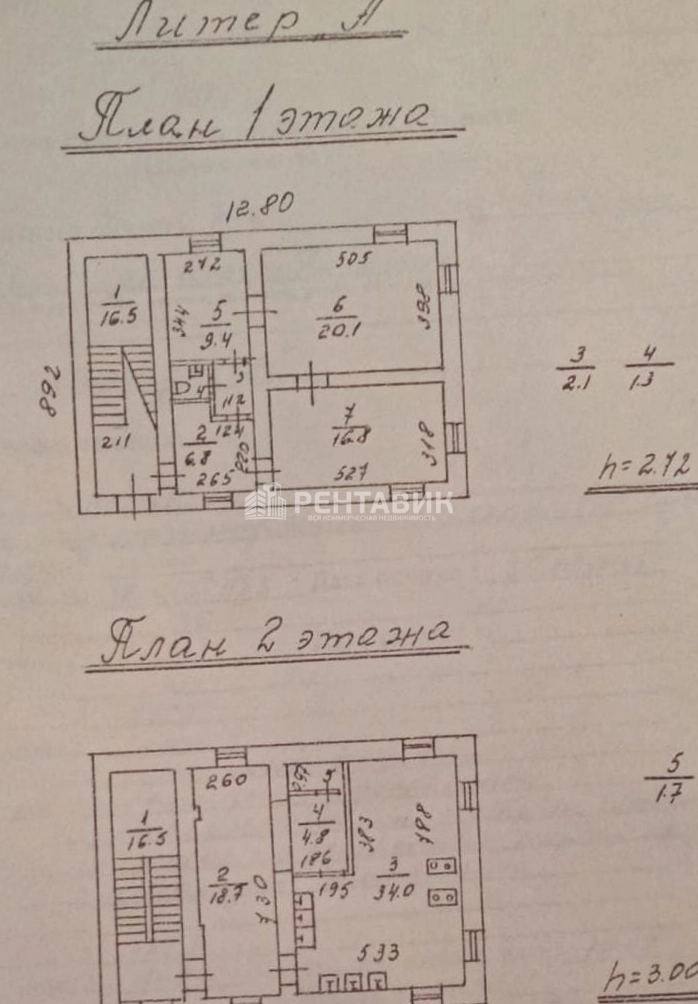 Литер А
План 1 этажа
12.80
272
505
1
16.5
344
5
9.4
6
20.1
398
3
2.1
4
1.3
892
3
4
112
7
16.8
318
2
6.8
124
211
265
220
527
h=2.72
РЕНТАВИК
ВСЯ КОММЕРЧЕСКАЯ НЕДВИЖИМОСТЬ
План 2 этажа
260
5
5
1.7
1
16.5
4
4.8
383
788
186
2
18.7
730
195
3
34.0
533
h=3.00